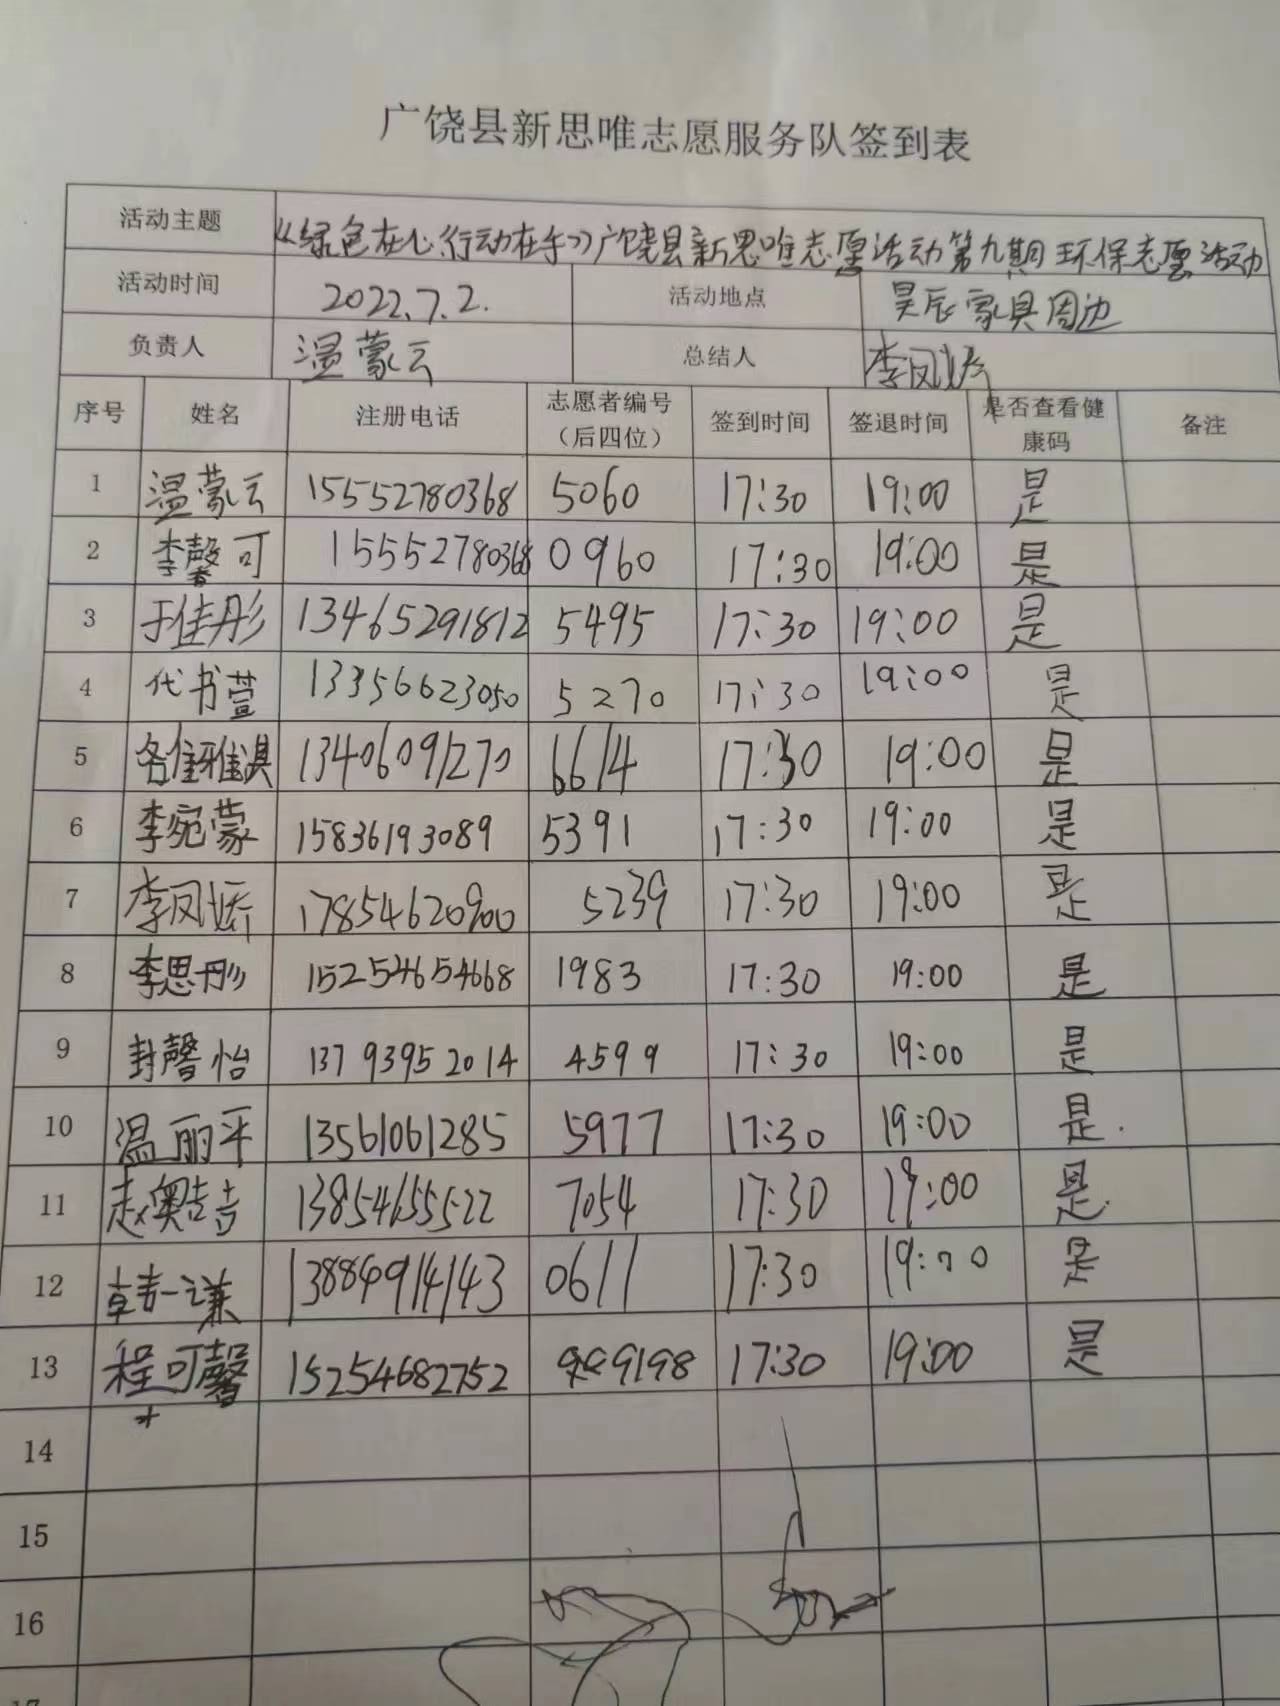 广饶县新思唯志愿服务队签到表
活动主题 《绿色在心,行动在手》广饶县新思唯志愿活动第九期环保志愿活动
活动时间 2022.7.2. 活动地点 昊辰家具周边
负责人 温蒙云 总结人 李凤娇
序号 姓名 注册电话 志愿者编号（后四位） 签到时间 签退时间 是否查看健康码 备注
1 温蒙云 15552780368 5060 17:30 19:00 是
2 李馨可 15552780368 0960 17:30 19:00 是
3 于佳彤 13465291812 5495 17:30 19:00 是
4 代书萱 13356623050 5270 17:30 19:00 是
5 13406091270 6614 17:30 19:00 是
6 李宛蒙 15836193089 5391 17:30 19:00 是
7 李凤娇 17854620900 5239 17:30 19:00 是
8 李思彤 15254654668 1983 17:30 19:00 是
9 封馨怡 13793952014 4599 17:30 19:00 是
10 温丽平 13561061285 5977 17:30 19:00 是.
11 赵奥吉 13854655522 7054 17:30 19:00 是.
12 韩一谦 13884914143 0611 17:30 19:00 是
13 程可馨 15254682752 9198 17:30 19:00 是
14
15
16
17